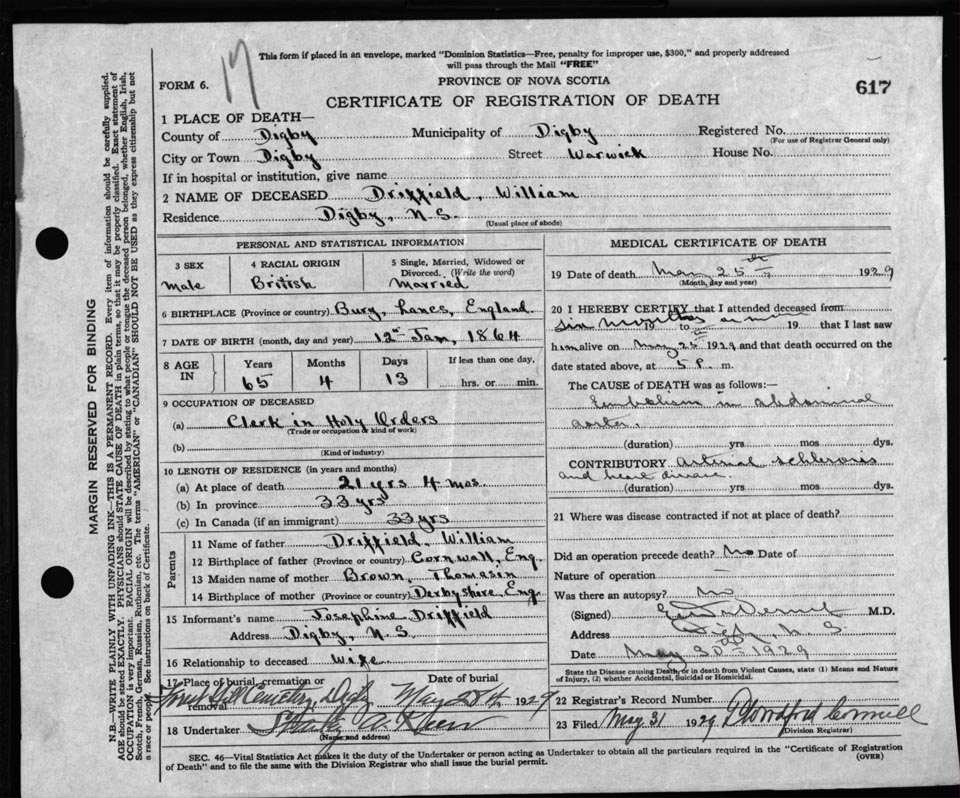 17
This form if placed in an envelope, marked "Dominion Statistics—Free, penalty for improper use, $300," and properly addressed
will pass through the Mail "FREE"
FORM 6.
PROVINCE OF NOVA SCOTIA
617
CERTIFICATE OF REGISTRATION OF DEATH
1 PLACE OF DEATH—
County of Digby Municipality of Digby Registered No.
(For use of Registrar General only)
City or Town Digby Street Warwick House No.
If in hospital or institution, give name
2 NAME OF DECEASED Driffield, William
Residence Digby, N.S.
(Usual place of abode)
PERSONAL AND STATISTICAL INFORMATION
3 SEX 4 RACIAL ORIGIN 5 Single, Married, Widowed or
Divorced. (Write the word)
male British Married
6 BIRTHPLACE (Province or country) Bury, Lancs, England
7 DATE OF BIRTH (month, day and year) 12th Jan, 1864
8 AGE IN Years Months Days If less than one day,
65 4 13 hrs. or min.
9 OCCUPATION OF DECEASED
(a) Clerk in Holy Orders
(Trade or occupation or kind of work)
(b)
(Kind of industry)
10 LENGTH OF RESIDENCE (in years and months)
(a) At place of death 21 yrs 4 mos
(b) In province 33 yrs
(c) In Canada (if an immigrant) 33 yrs
Parents
11 Name of father Driffield, William
12 Birthplace of father (Province or country) Cornwall, Eng.
13 Maiden name of mother Brown, Thomasin
14 Birthplace of mother (Province or country) Derbyshire, Eng.
15 Informant's name Josephine Driffield
Address Digby, N.S.
16 Relationship to deceased wife
17 Place of burial, cremation or removal Date of burial
Forest Hill Cemetery, Digby May 28th 1929
18 Undertaker
(Name and address)
MEDICAL CERTIFICATE OF DEATH
19 Date of death May 25th 1929
(Month, day and year)
20 I HEREBY CERTIFY that I attended deceased from
six months 19 to 19 that I last saw
him alive on May 25 1929 and that death occurred on the
date stated above, at 5 P. m.
The CAUSE of DEATH was as follows:—
Embolism in abdominal
aorta.
(duration) yrs. mos. dys.
CONTRIBUTORY arterial schlerosis
and heart disease
(duration) yrs. mos. dys.
21 Where was disease contracted if not at place of death?
Did an operation precede death? No Date of
Nature of operation —
Was there an autopsy? no
(Signed) M.D.
Address Digby, N.S.
Date May 30th 1929
State the Disease causing Death, or in death from Violent Causes, state (1) Means and Nature
of Injury, (2) whether Accidental, Suicidal or Homicidal.
22 Registrar's Record Number
23 Filed May 31 1929
(Division Registrar)
SEC. 46—Vital Statistics Act makes it the duty of the Undertaker or person acting as Undertaker to obtain all the particulars required in the "Certificate of Registration
of Death" and to file the same with the Division Registrar who shall issue the burial permit.
(OVER)
MARGIN RESERVED FOR BINDING
N.B.—WRITE PLAINLY WITH UNFADING INK—THIS IS A PERMANENT RECORD. Every item of information should be carefully supplied.
AGE should be stated EXACTLY. PHYSICIANS should STATE CAUSE OF DEATH in plain terms, so that it may be properly classified. Exact statement of
OCCUPATION is very important. RACIAL ORIGIN will be described by stating to what people or tongue the deceased person belonged, whether English, Irish,
Scotch, French, German, Russian, Ruthenian, etc. The terms "AMERICAN" or "CANADIAN" SHOULD NOT BE USED as they express citizenship but not
a race or people. See instructions on back of Certificate.